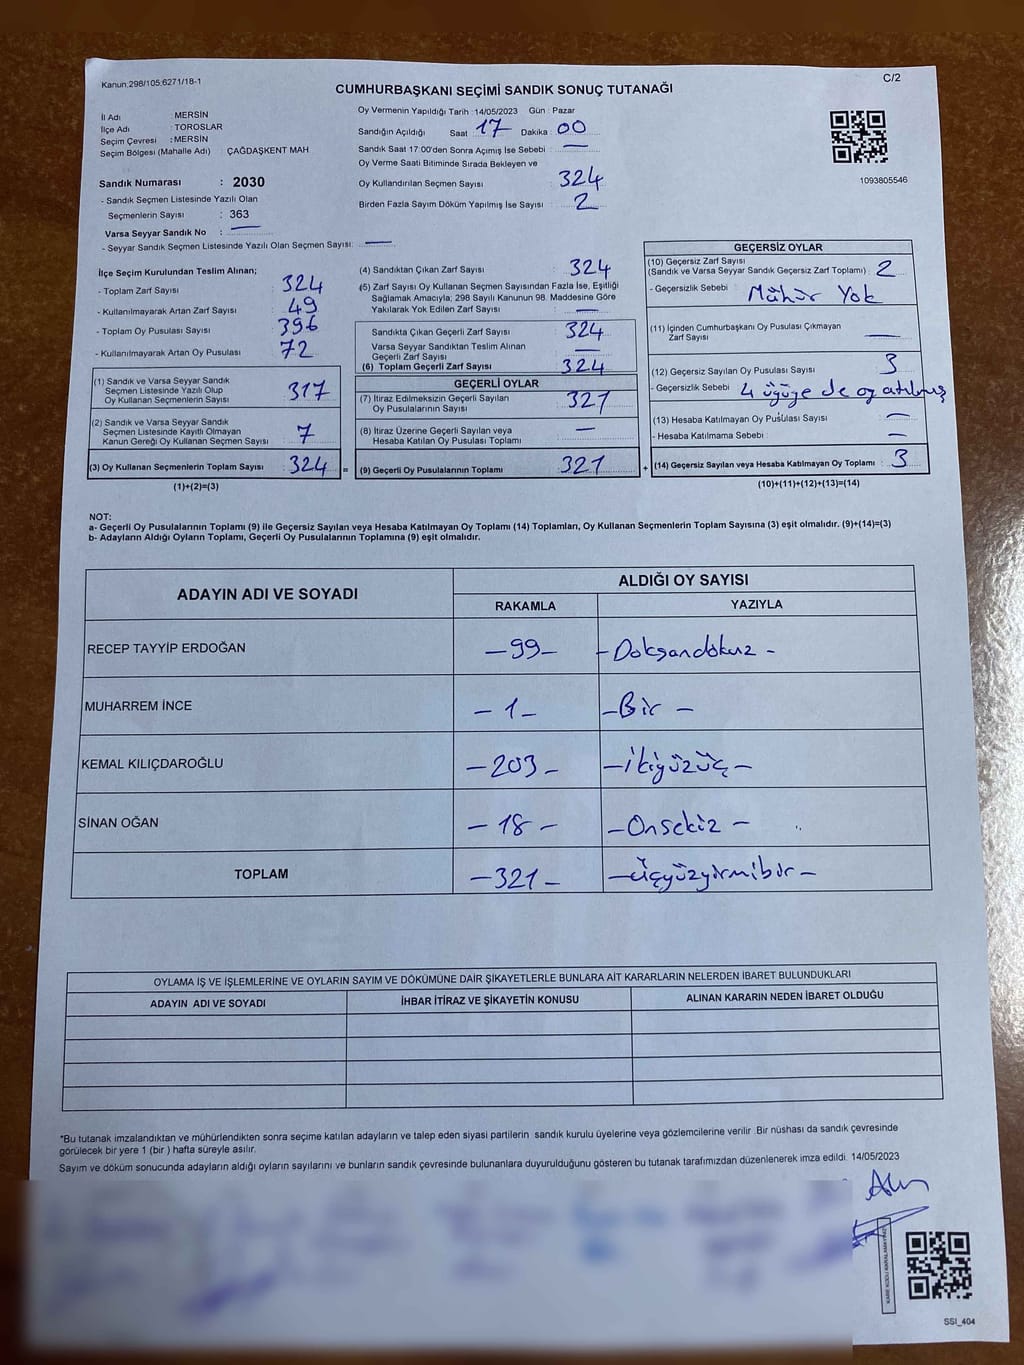 Kanun.298/105.6271/18-1
C/2
CUMHURBAŞKANI SEÇİMİ SANDIK SONUÇ TUTANAĞI
İl Adı : MERSİN
İlçe Adı : TOROSLAR
Seçim Çevresi : MERSİN
Seçim Bölgesi (Mahalle Adı) : ÇAĞDAŞKENT MAH
Sandık Numarası : 2030
- Sandık Seçmen Listesinde Yazılı Olan
Seçmenlerin Sayısı : 363
Varsa Seyyar Sandık No : —
- Seyyar Sandık Seçmen Listesinde Yazılı Olan Seçmen Sayısı: —
Oy Vermenin Yapıldığı Tarih : 14/05/2023 Gün : Pazar
Sandığın Açıldığı Saat 17 Dakika : 00
Sandık Saat 17:00'den Sonra Açımış İse Sebebi : —
Oy Verme Saati Bitiminde Sırada Bekleyen ve
Oy Kullandırılan Seçmen Sayısı : 324
Birden Fazla Sayım Döküm Yapılmış İse Sayısı : 2
1093805546
İlçe Seçim Kurulundan Teslim Alınan;
- Toplam Zarf Sayısı : 324
- Kullanılmayarak Artan Zarf Sayısı : 49
- Toplam Oy Pusulası Sayısı : 396
- Kullanılmayarak Artan Oy Pusulası : 72
(1) Sandık ve Varsa Seyyar Sandık
Seçmen Listesinde Yazılı Olup
Oy Kullanan Seçmenlerin Sayısı : 317
(2) Sandık ve Varsa Seyyar Sandık
Seçmen Listesinde Kayıtlı Olmayan
Kanun Gereği Oy Kullanan Seçmen Sayısı : 7
(3) Oy Kullanan Seçmenlerin Toplam Sayısı : 324 =
(1)+(2)=(3)
(4) Sandıktan Çıkan Zarf Sayısı : 324
(5) Zarf Sayısı Oy Kullanan Seçmen Sayısından Fazla İse, Eşitliği
Sağlamak Amacıyla; 298 Sayılı Kanunun 98. Maddesine Göre
Yakılarak Yok Edilen Zarf Sayısı : —
Sandıkta Çıkan Geçerli Zarf Sayısı : 324
Varsa Seyyar Sandıktan Teslim Alınan
Geçerli Zarf Sayısı : —
(6) Toplam Geçerli Zarf Sayısı : 324
GEÇERLİ OYLAR
(7) İtiraz Edilmeksizin Geçerli Sayılan
Oy Pusulalarının Sayısı : 321
(8) İtiraz Üzerine Geçerli Sayılan veya
Hesaba Katılan Oy Pusulası Toplamı : —
(9) Geçerli Oy Pusulalarının Toplamı : 321 +
GEÇERSİZ OYLAR
(10) Geçersiz Zarf Sayısı
(Sandık ve Varsa Seyyar Sandık Geçersiz Zarf Toplamı) : 2
- Geçersizlik Sebebi : Mühür Yok
(11) İçinden Cumhurbaşkanı Oy Pusulası Çıkmayan
Zarf Sayısı : —
(12) Geçersiz Sayılan Oy Pusulası Sayısı : 3
- Geçersizlik Sebebi : 4 üyüye de oy atılmış
(13) Hesaba Katılmayan Oy Pusulası Sayısı : —
- Hesaba Katılmama Sebebi : —
(14) Geçersiz Sayılan veya Hesaba Katılmayan Oy Toplamı : 3
(10)+(11)+(12)+(13)=(14)
NOT:
a- Geçerli Oy Pusulalarının Toplamı (9) ile Geçersiz Sayılan veya Hesaba Katılmayan Oy Toplamı (14) Toplamları, Oy Kullanan Seçmenlerin Toplam Sayısına (3) eşit olmalıdır. (9)+(14)=(3)
b- Adayların Aldığı Oyların Toplamı, Geçerli Oy Pusulalarının Toplamına (9) eşit olmalıdır.
ADAYIN ADI VE SOYADI
ALDIĞI OY SAYISI
RAKAMLA YAZIYLA
RECEP TAYYİP ERDOĞAN —99— —Doksandokuz —
MUHARREM İNCE —1— —Bir —
KEMAL KILIÇDAROĞLU —203— —İkiyüzüç—
SİNAN OĞAN —18— —Onsekiz —
TOPLAM —321— —üçyüzyirmibir—
OYLAMA İŞ VE İŞLEMLERİNE VE OYLARIN SAYIM VE DÖKÜMÜNE DAİR ŞİKAYETLERLE BUNLARA AİT KARARLARIN NELERDEN İBARET BULUNDUKLARI
ADAYIN ADI VE SOYADI İHBAR İTİRAZ VE ŞİKAYETİN KONUSU ALINAN KARARIN NEDEN İBARET OLDUĞU
*Bu tutanak imzalandıktan ve mühürlendikten sonra seçime katılan adayların ve talep eden siyasi partilerin sandık kurulu üyelerine veya gözlemcilerine verilir. Bir nüshası da sandık çevresinde
görülecek bir yere 1 (bir ) hafta süreyle asılır.
Sayım ve döküm sonucunda adayların aldığı oyların sayılarını ve bunların sandık çevresinde bulunanlara duyurulduğunu gösteren bu tutanak tarafımızdan düzenlenerek imza edildi. 14/05/2023
SSI_404